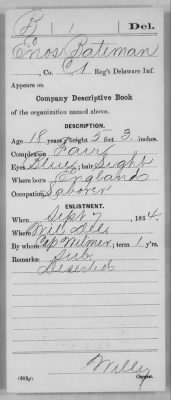 B 1 Del.
Enos Bateman
, Co. A, 1 Reg't Delaware Inf.
Appears on
Company Descriptive Book
of the organization named above.
DESCRIPTION.
Age 18 years; height 5 feet 3 inches.
Complexion Fair
Eyes Blue; hair Light
Where born England
Occupation Laborer
ENLISTMENT.
When Sept 7, 1864.
Where Wil Del
By whom Cap Wilmer; term 1 y'rs.
Remarks: Sub.
Deserted
Willey
Copyist.